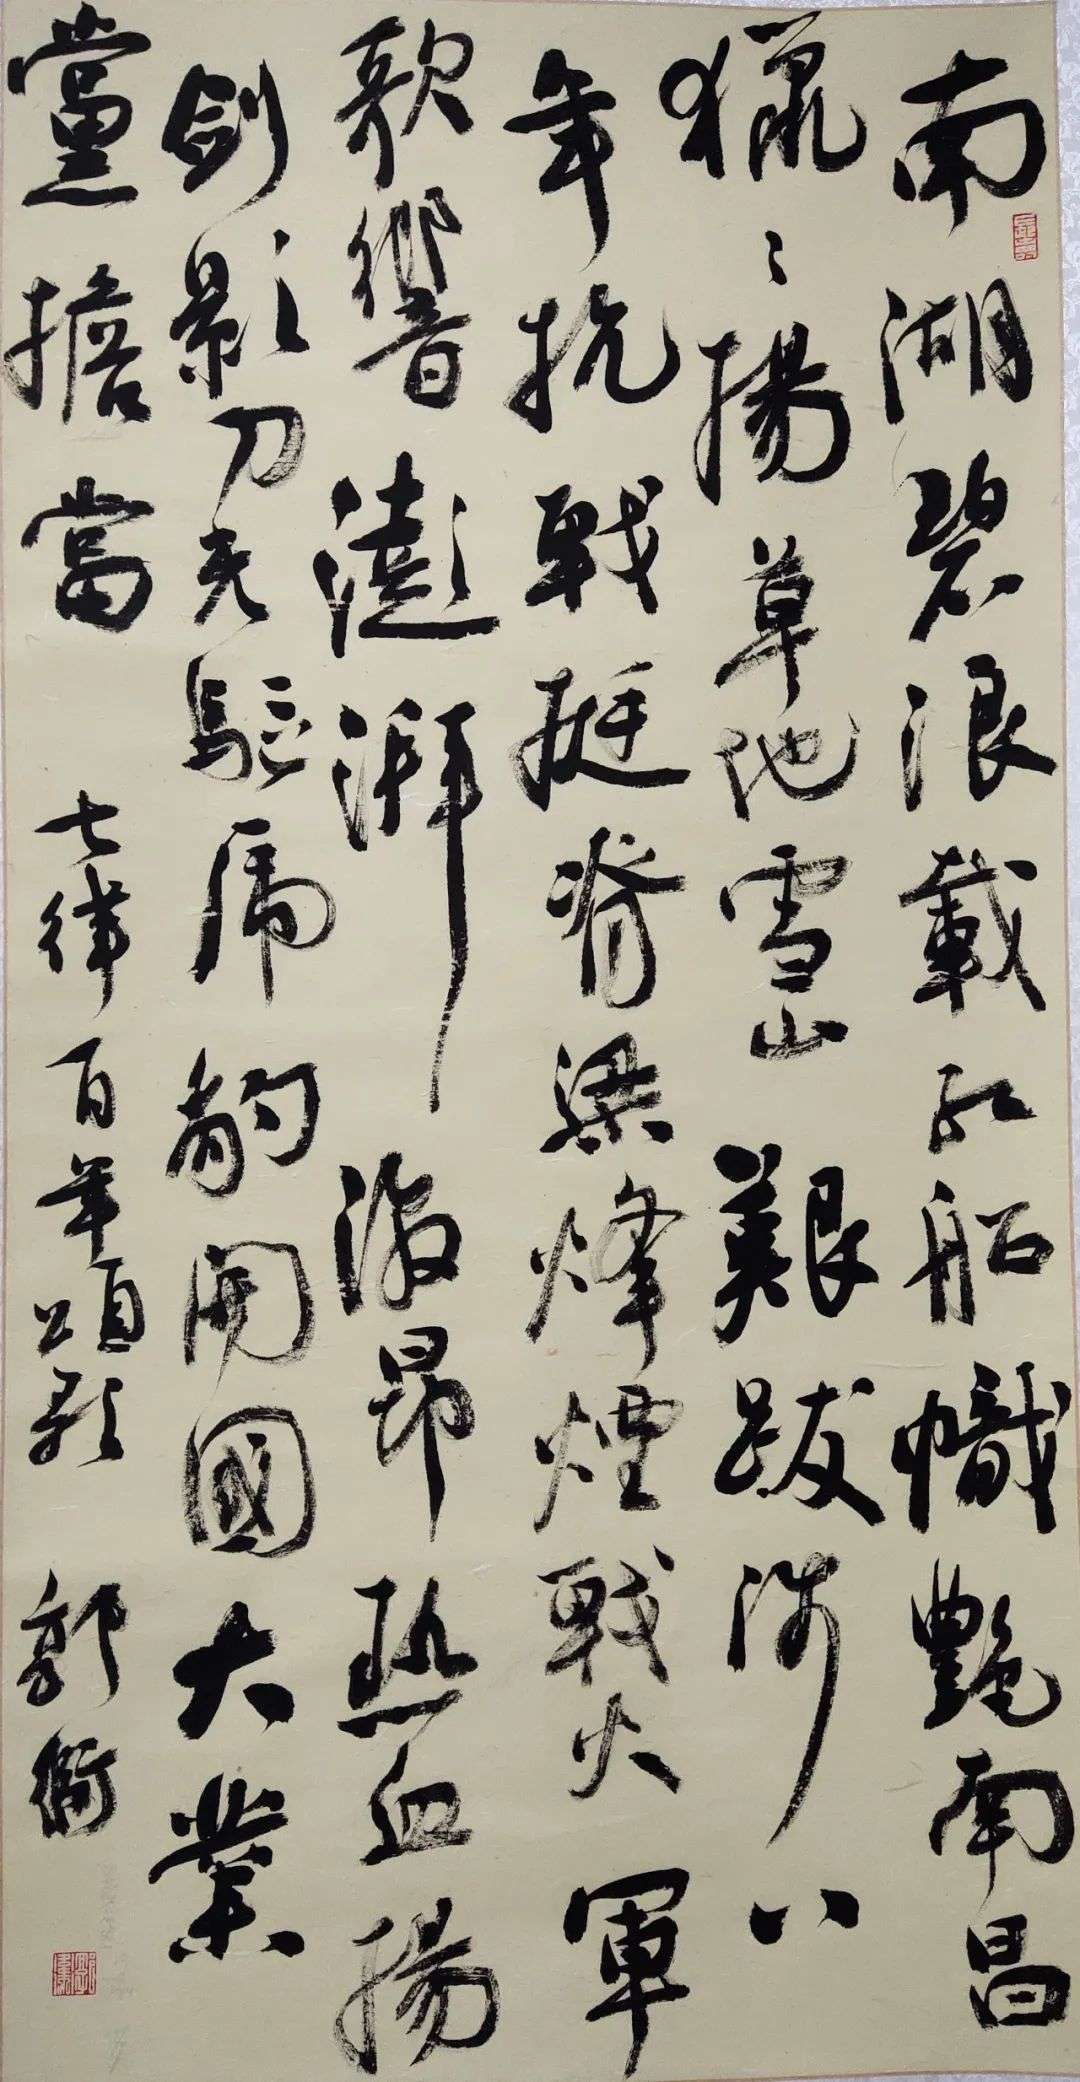 南湖碧浪載紅船幟艷南昌
獵〻揚草地雪山艱跋涉八
年抗戰挺脊梁烽煙戰火軍
歌響澎湃激昂熱血揚
劍影刀光驅虎豹開國大業
黨擔當
七律百年頌歌 郭衛